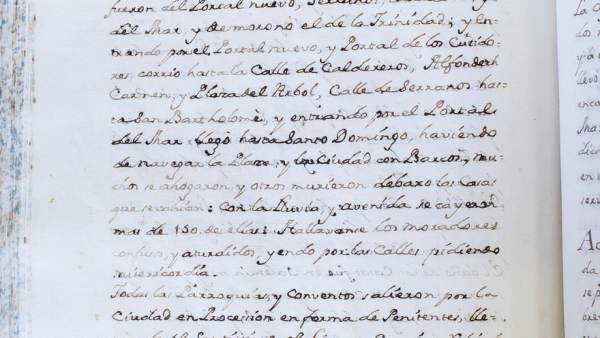 fueron del Portal nuevo, Serranos,
del Mar, y desmoronó el de la Trinidad; y en-
trando por el Portal nuevo, y Portal de los Curtido-
res, corrio hasta la Calle de Caldereros, Alfondech
Carmen, y Plaza del Arbol, Calle de Serranos has-
ta San Bartholomè, y entrando por el Portal
del Mar llegò hasta Santo Domingo, haviendo
de navegar la Plaza, y la Ciudad con Barcos, mu-
chos se ahogaron, y otros murieron debaxo las Casas
que se undian: con la lluvia, y avenida se cayeron
mas de 150. de ellas: Hallavanse los moradores
confusos, y aturdidos, yendo por las Calles, pidiendo
misericordia.
Todas las Parroquias, y Conventos salieron por la
Ciudad en Procesion en forma de Penitentes, lle-